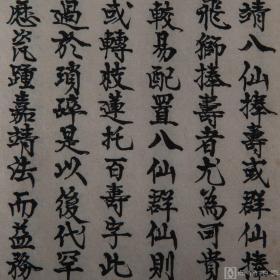 靖八仙捧壽或
飛獅捧壽者尤為可貴
較易配置八仙群仙則
或轉枝蓮托百壽字此
過於瑣碎是以後代罕
應瓷踵嘉靖法而益務